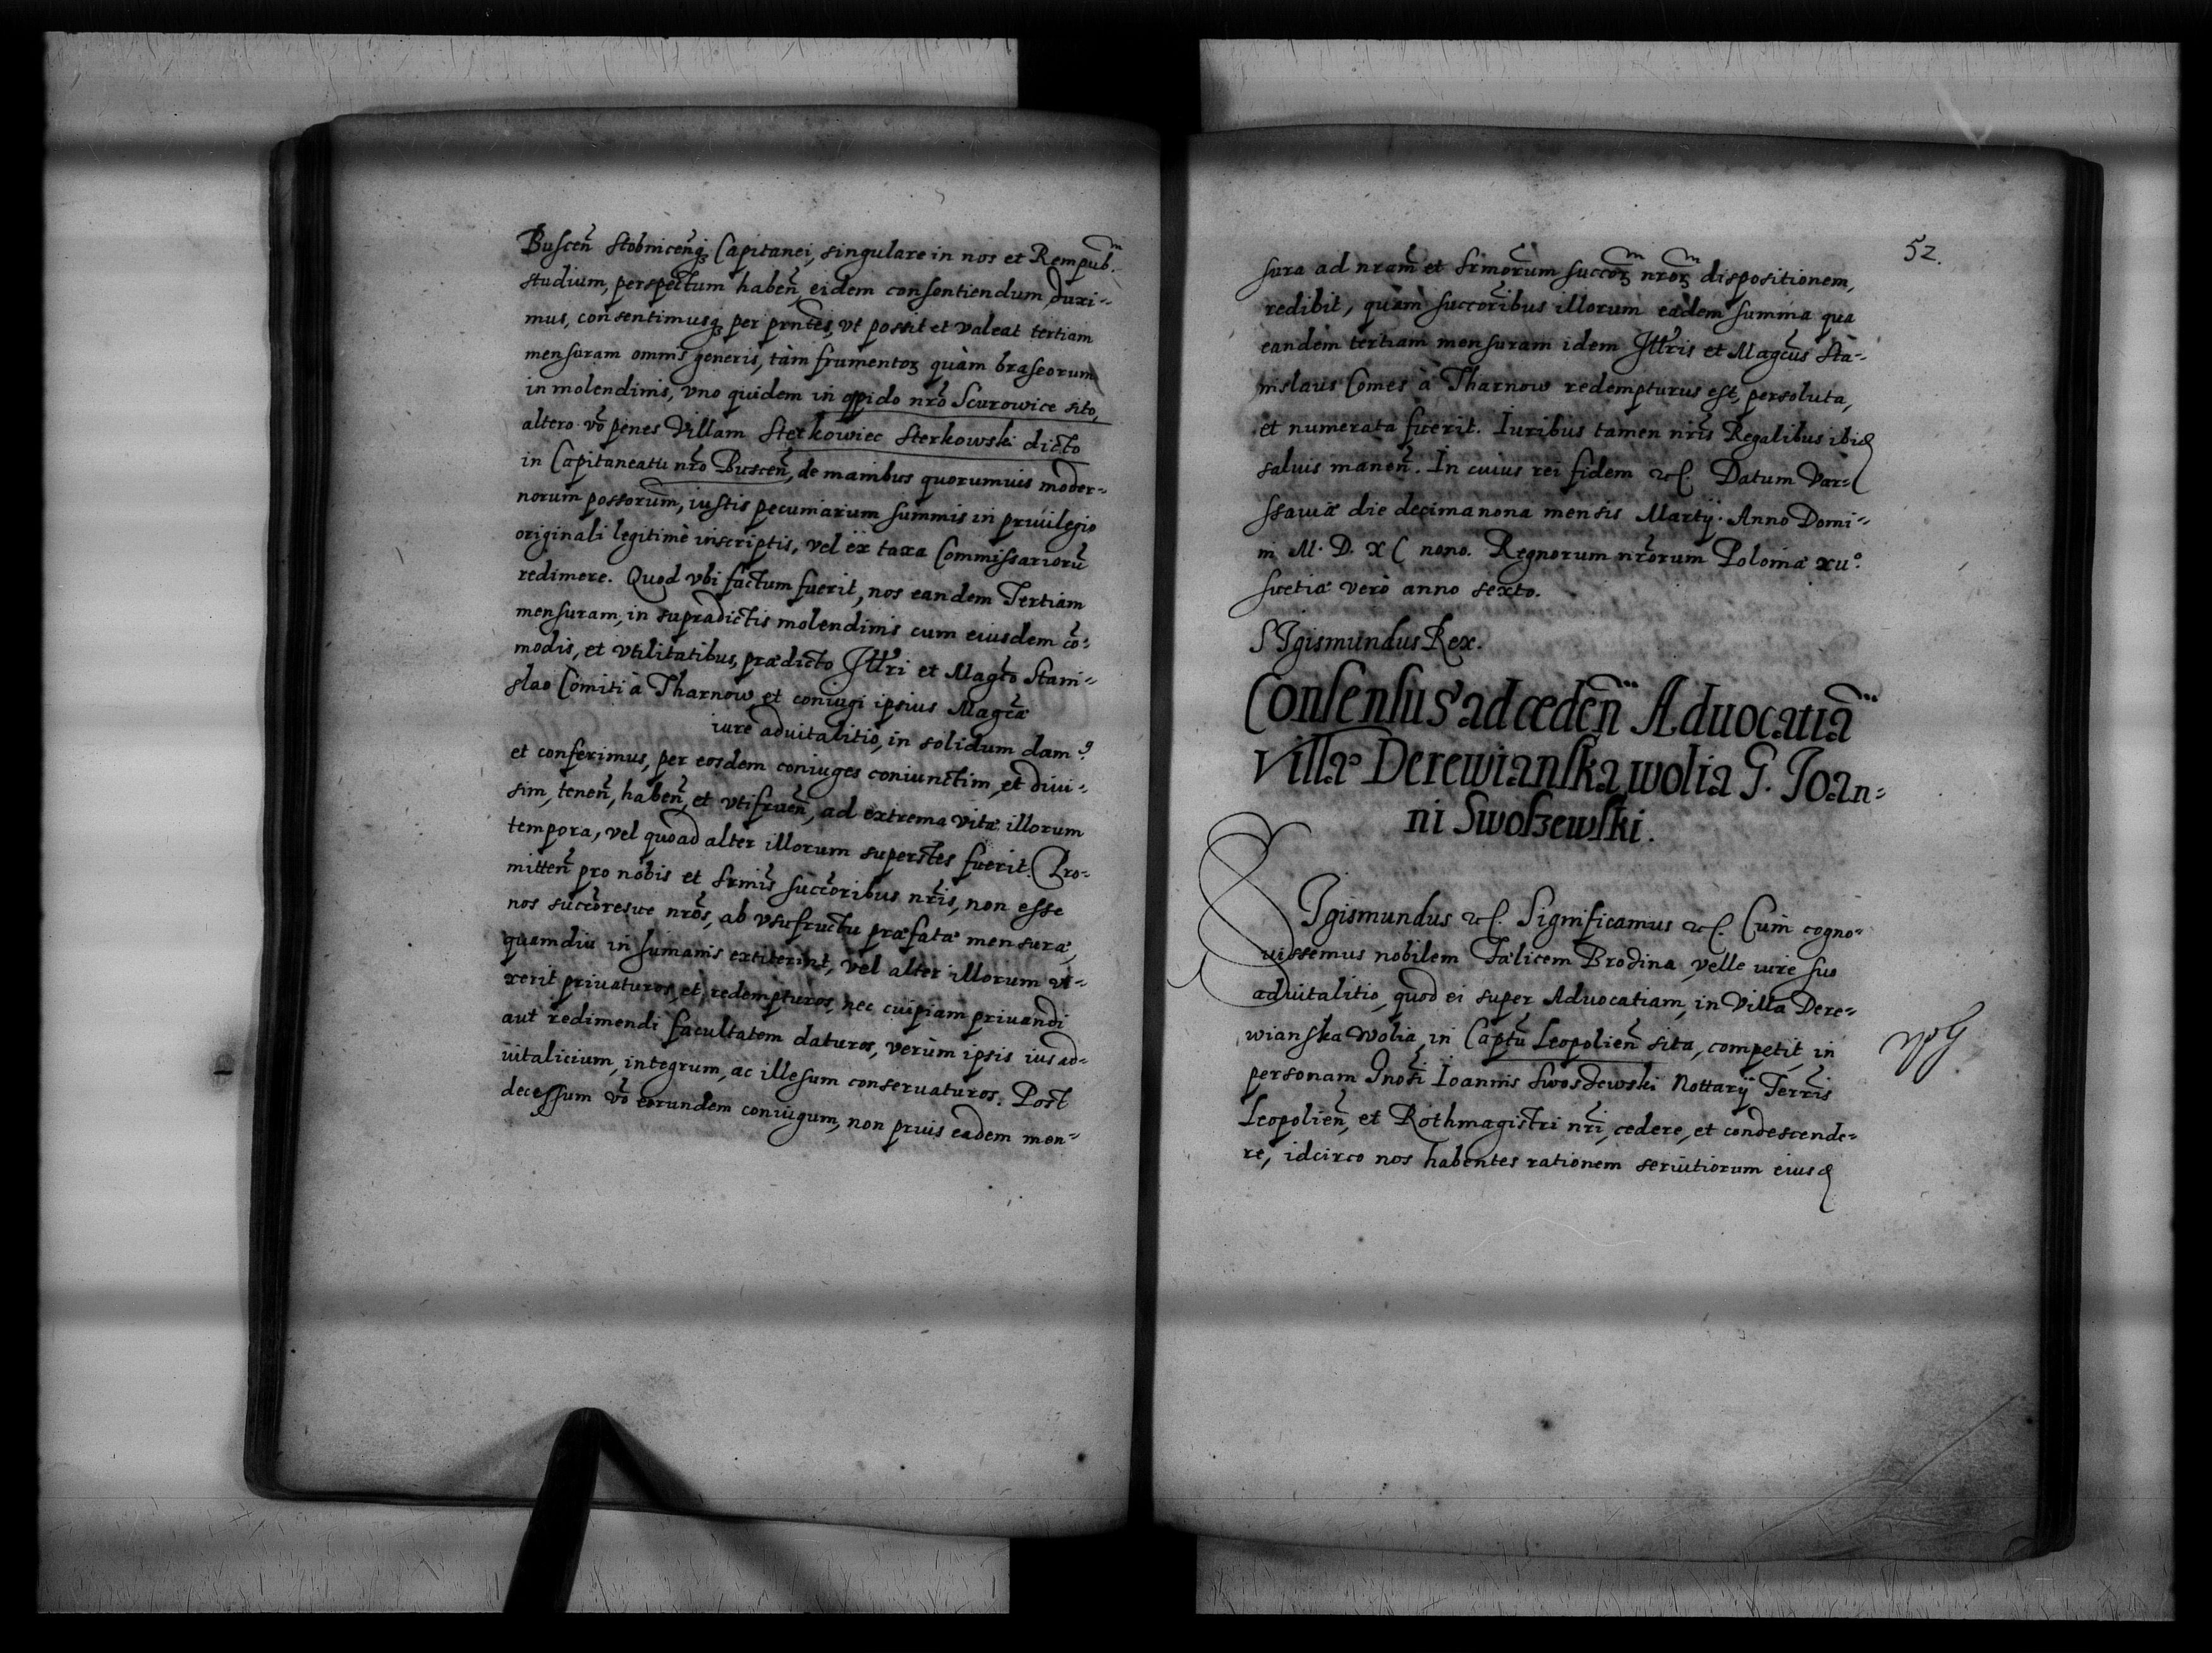 Buscen̄ Stobnicenq₃ Capitanei, singulare in nos et Rempub.ᵐ
studium, perspectum haben̄, eidem consentiendum duxi-
mus, consentimusq₃ per pnt̄es, vt possit et valeat tertiam
mensuram omnis generis, tàm frumentoꝝ quàm braseorum
in molendinis, vno quidem in oppido nr̄o Scurowice sito,
altero v̄o penes Villam Sterkowiec Sterkowski dicto
in Capitaneatu nr̄o Buscen̄, de manibus quorumuis moder-
norum possorūm, iustis pecuniarum summis in priuilegio
originali legitimè inscriptis, vel ex taxa Commissariorū
redimere. Quod vbi factum fuerit, nos eandem Tertiam
mensuram, in supradictis molendinis cum eiusdem cō-
modis, et vtilitatibus, prædicto Jllr̄i et Magc̄o Stani-
slao Comiti à Tharnow, et coniugi ipsius Magcǣ
iure aduitalitio, in solidum damꝰ
et conferimus, per eosdem coniuges coniunctim, et diui-
sim, tenen̄, haben̄, et vtifruen̄, ad extrema vitæ illorum
tempora, vel quoad alter illorum superstes fuerit. Pro-
mitten̄ pro nobis et Srmīs succ̄oribus nr̄is, non esse
nos succ̄oresue nr̄os, ab vsufructu præfatæ mensuræ,
quamdiu in humanis extiterint, vel alter illorum vi-
xerit priuaturos, et redempturos, nec cuipiam priuandi
aut redimendi facultatem daturos, verùm ipsis ius ad-
uitalicium, integrum, ac illesum conseruaturos. Post
decessum v̄o eorundem coniugum, non prius eadem men-
52.
sura ad nr̄am et Srmōrum succoꝝ nroꝝ dispositionem,
redibit, quàm succ̄oribus illorum eadem summa qua
eandem tertiam mensuram idem Jllr̄is et Magc̄us Sta-
nislaus Comes à Tharnow redempturus est, persoluta,
et numerata fuerit. Iuribus tamen nr̄is Regalibus ibid
saluis manen̄. In cuius rei fidem etc. Datum Var-
ssauiæ die decima nona mensis Martij. Anno Domi-
ni M. D. XC nono. Regnorum nr̄orum Poloniæ xii°.
Suetiæ verò anno sexto.
SIgismundus Rex.
Consensus ad cedēn Aduocatiā
Villæ Derewianska wolia G. Ioan-
ni Swoszewski.
SIgismundus etc. Significamus etc. Cum cogno-
uissemus nobilem Fælicem Brodina velle iure suo
aduitalitio, quod ei super Aduocatiam, in Villa Dere-
wianska Wolia, in Captū Leopolien̄ sita, competit, in
personam Gnosī Ioannis Swosdewski Nottarij Terrīs
Leopolien̄, et Rothmagistri nr̄i, cedere, et condescende-
re, idcirco nos habentes rationem seruitiorum eiusd